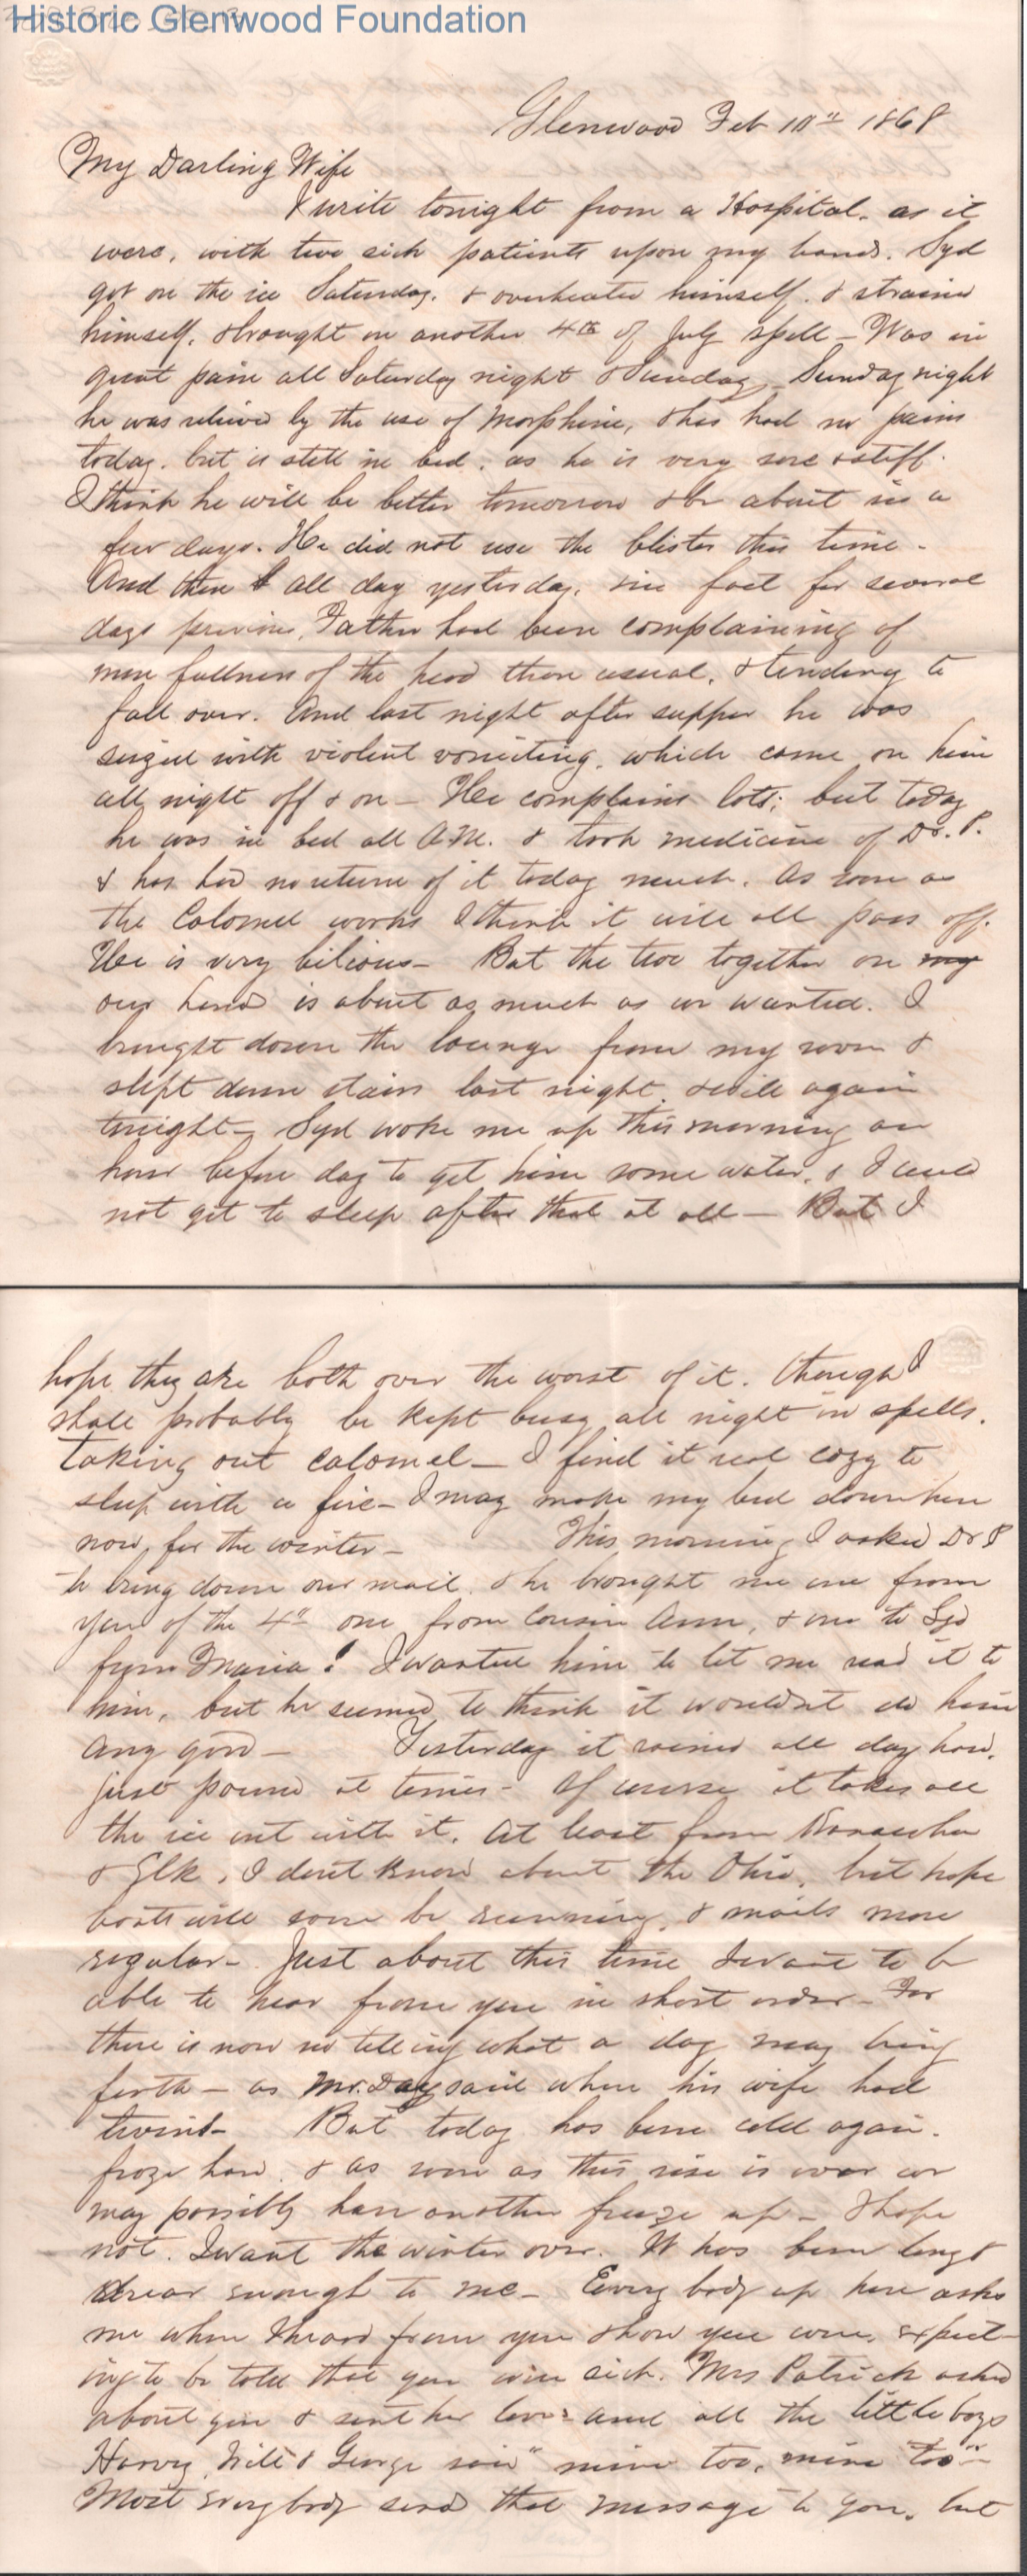 Historic Glenwood Foundation
Glenwood Feb 10th 1868
My Darling Wife
I write tonight from a Hospital, as it
were, with two sick patients upon my hands. Syd
got on the ice Saturday, & overheated himself, & strained
himself, & brought on another 4th of July spell – Was in
great pain all Saturday night & Sunday. Sunday night
he was relieved by the use of Morphine, & has had no pains
today, but is still in bed, as he is very sore & stiff.
I think he will be better tomorrow & be about in a
few days. He did not use the blister this time –
And then all day yesterday, in fact for several
days previous, Father had been complaining of
more fullness of the head than usual, & tending to
fall over. And last night after supper he was
seized with violent vomiting, which came on him
all night off & on – He complains lots; but today
he was in bed all A.M. & took medicine of Dr. P.
& has had no return of it today much. As soon as
the Calomel works I think it will all pass off.
He is very bilious – But the two together on my
our hands is about as much as we wanted. I
brought down the lounge from my room &
slept down stairs last night, & will again
tonight – Syd woke me up this morning an
hour before day to get him some water, & I could
not get to sleep after that at all – But I
hope they are both over the worst of it. though I
shall probably be kept busy all night in spells,
taking out calomel – I find it real cozy to
sleep with a fire – I may make my bed down here
now, for the winter – This morning I asked Dr P
to bring down our mail, & he brought me one from
you of the 4th one from Cousin Ann, & one to Syd
from Maria! I wanted him to let me read it to
him, but he seemed to think it wouldn't do him
any good – Yesterday it rained all day hard,
just poured at times – Of course it takes all
the ice out with it. At least from Kanawha
& Elk, I dont know about the Ohio, but hope
boats will soon be running, & mails more
regular – Just about this time I want to be
able to hear from you in short order – For
there is now no telling what a day may bring
forth – as Mr. Day said when his wife had
twins – But today has been cold again.
froze hard, & as soon as this rise is over we
may possibly have another freeze up – I hope
not. I want the winter over. It has been long &
drear enough to me – Every body up here asks
me when I heard from you & how you were, expect-
ing to be told that you were sick. Mrs Patrick asked
about you & sent her love: and all the little boys
Harvy, Will & George said "mine too, mine too" –
Most everybody send that message to you, but